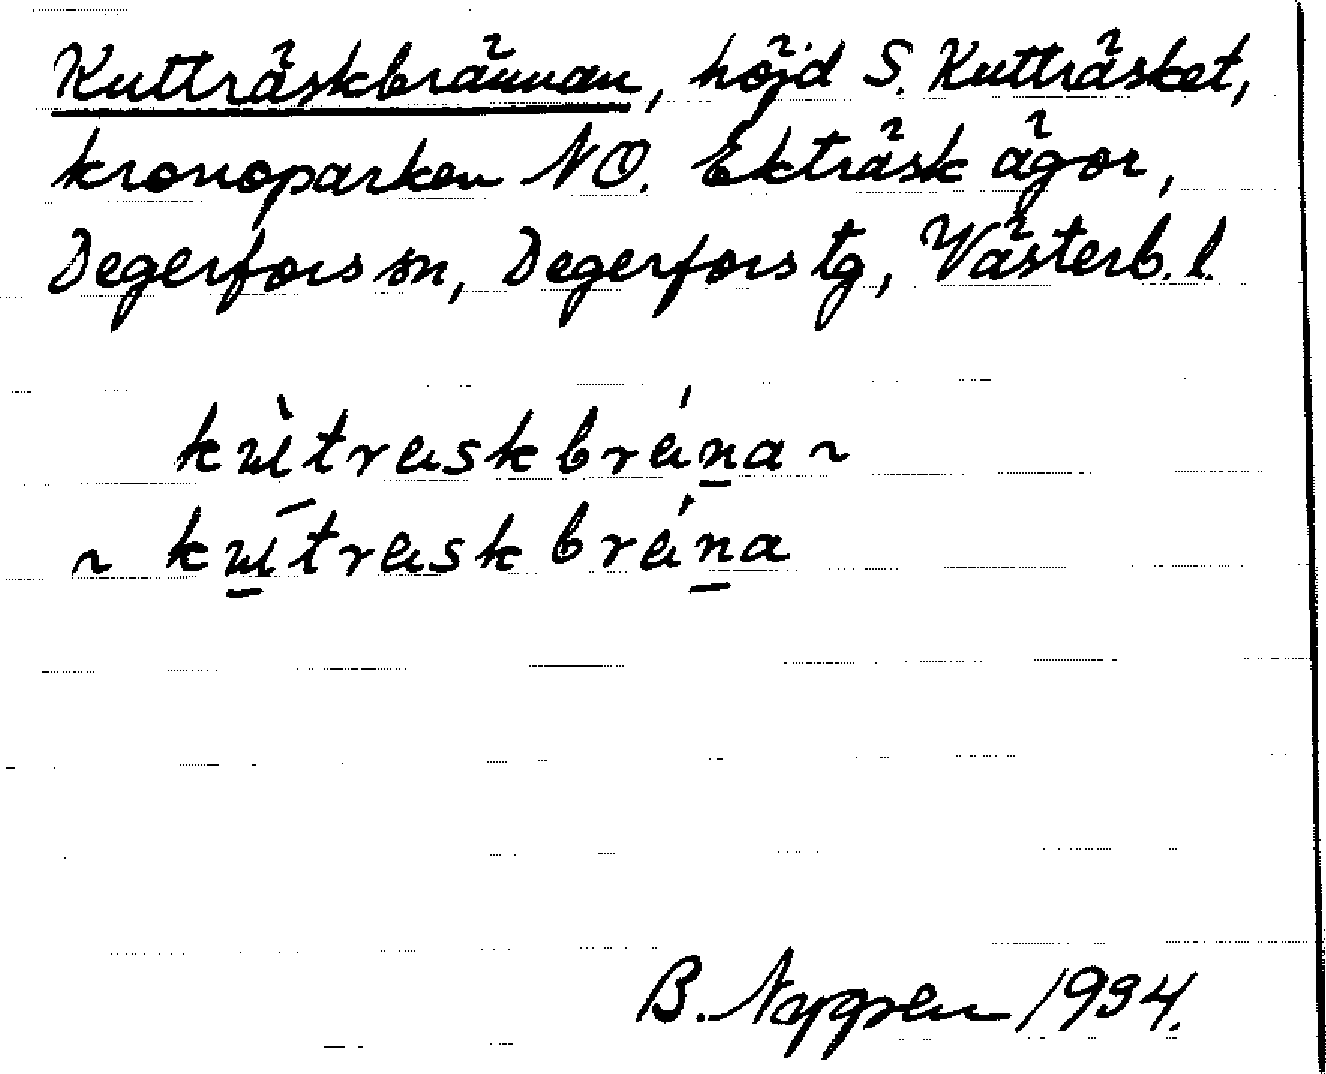 Kutträskbrännan, höjd S. Kutträsket,
kronoparken NO. Ekträsk ägor,
Degerfors sn, Degerfors tg, Västerb. l.
kùtræskbrǽn̲a ~
~ kútræskbrǽn̲a
B. Nygren 1934.